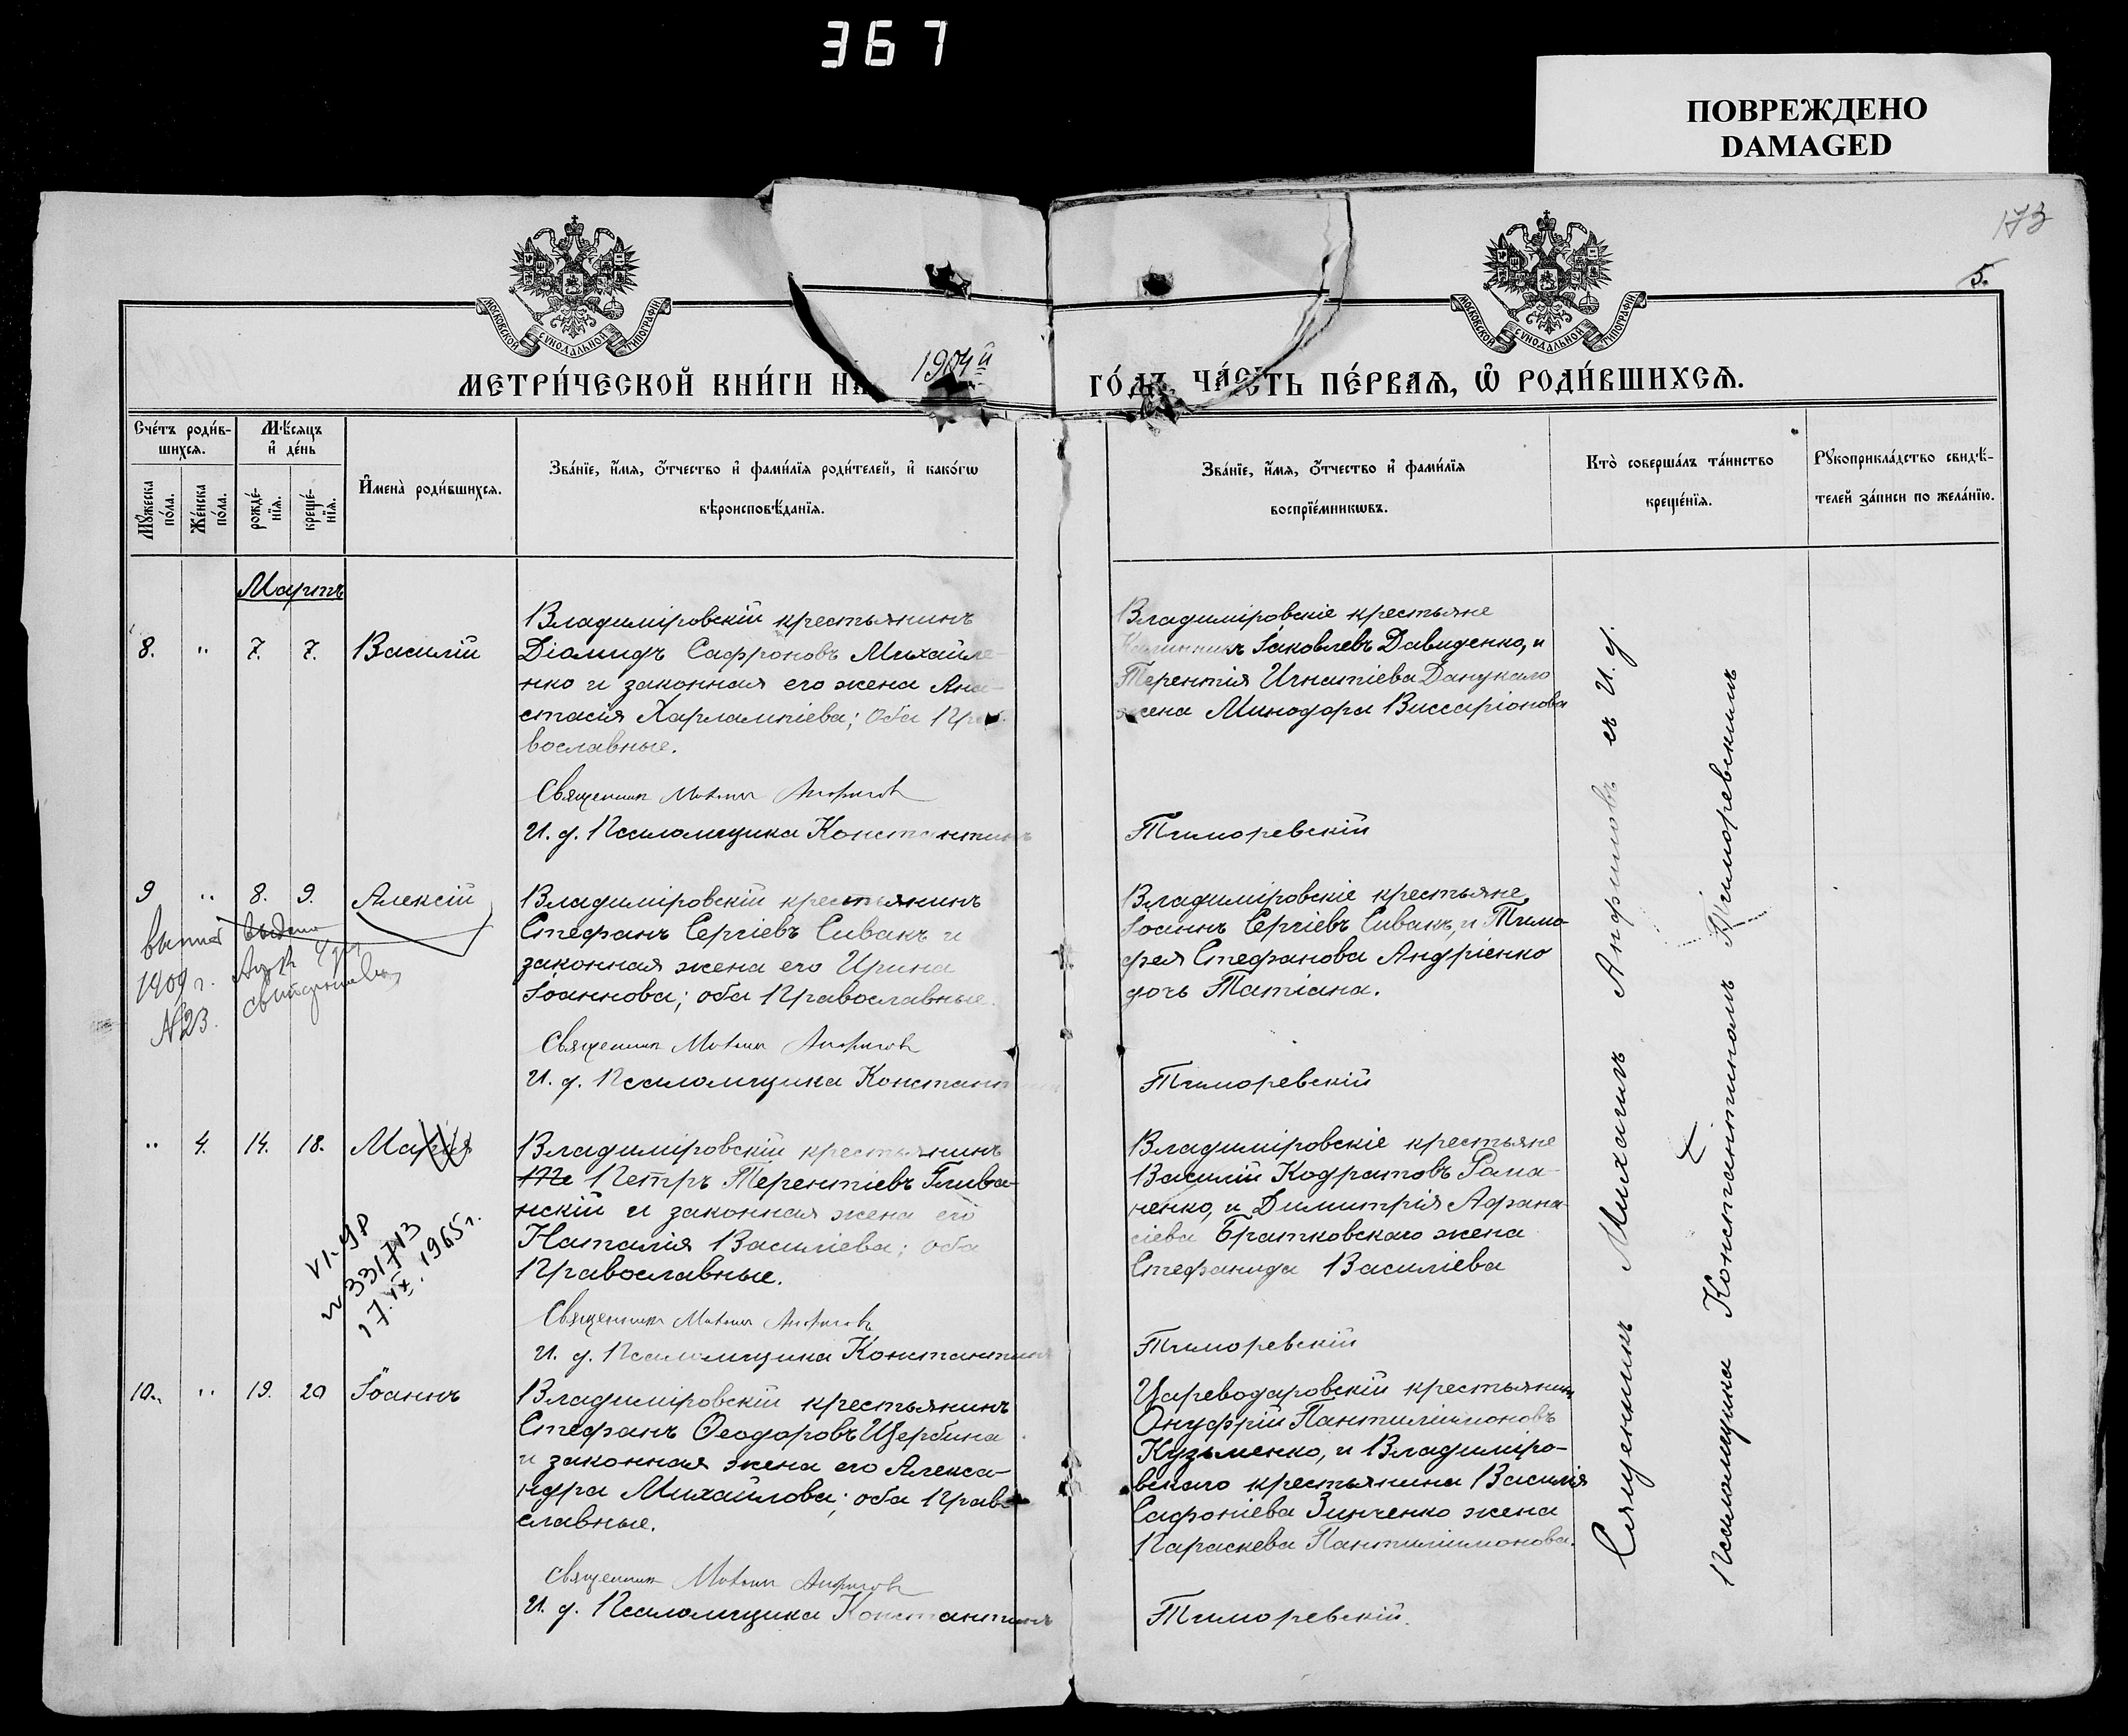 367
ПОВРЕЖДЕНО
DAMAGED
173
5.
МОСКОВСКОЙ СѴНОДАЛЬНОЙ ТИПОГРАФІИ
МОСКОВСКОЙ СѴНОДАЛЬНОЙ ТИПОГРАФІИ
МЕТРИ́ЧЕСКОЙ КНИ́ГИ НА 1904й ГО́ДЪ, ЧА́СТЬ ПЕ́РВАЯ, Ѽ РОДИ́ВШИХСЯ.
Сче́тъ роди́в-
шихся.
Мꙋ́жеска по́ла.
Же́нска по́ла.
Мѣ́сяцъ
и҆ де́нь
рожде́-
нїя.
креще́-
нїя.
И҆мена̀ роди́вшихся.
Зва́нїе, и҆́мя, ѻ҆́тчество и҆ фами́лїя роди́телей, и҆ како́гѡ
вѣроисповѣ́данїя.
Зва́нїе, и҆́мя, ѻ҆́тчество и҆ фами́лїя
воспрїе́мникѡвъ.
Кто̀ соверша́лъ та́инство
креще́нїя.
Рꙋкоприкла́дство свидѣ́-
телей за́писи по жела́нїю.
Мартъ
8. " 7. 7. Василій
Владиміровскій крестьянинъ
Діомидъ Сафроновъ Михайле-
нко и законная его жена Ана-
стасія Харлампіева; оба Пра-
вославные.
Священник
И. д. Псаломщика Константинъ
Владиміровскіе крестьяне
Іаковлевъ Давиденко, и
Терентія Игнатіева
жена Минодора Виссаріонова
Тиморевскій
9 " 8. 9. Алексій
1909 г.
№23.
Владиміровскій крестьянинъ
Стефанъ Сергіевъ Сивакъ и
законная жена его Ирина
Іоаннова; оба Православные.
Священник
И. д. Псаломщика Константинъ
Владиміровскіе крестьяне
Іоаннъ Сергіевъ Сивакъ, и Тимо-
фея Стефанова Андріенко
дочь Татіана.
Тиморевскій
" 4. 14. 18. Марія
VI-ЯР
№ 331713
17.IX.1965г.
Владиміровскій крестьянинъ
Те Петръ Терентіевъ Глива-
нскій и законная жена его
Наталія Василіева; оба
Православные.
Священник
И. д. Псаломщика Константинъ
Владиміровскіе крестьяне
Василій Кодратовъ Рома-
ненко, и Димитрія Афана-
сіева Братковскаго жена
Стефанида Василіева
Тиморевскій
10. " 19. 20 Іоаннъ
Владиміровскій крестьянинъ
Стефанъ Ѳеодоровъ Щербина
и законная жена его Алекса-
ндра Михайлова; оба Право-
славные.
Священник
И. д. Псаломщика Константинъ
Цареводаровскій крестьянин
Онуфрій Пантилимоновъ
Кузьменко, и Владиміро-
вскаго крестьянина Василія
Сафоніева Зинченко жена
Параскева Пантилимонова.
Тиморевскій.
Священникъ Михаилъ Анфимовъ съ И. д.
Псаломщика Константиномъ Тиморевскимъ